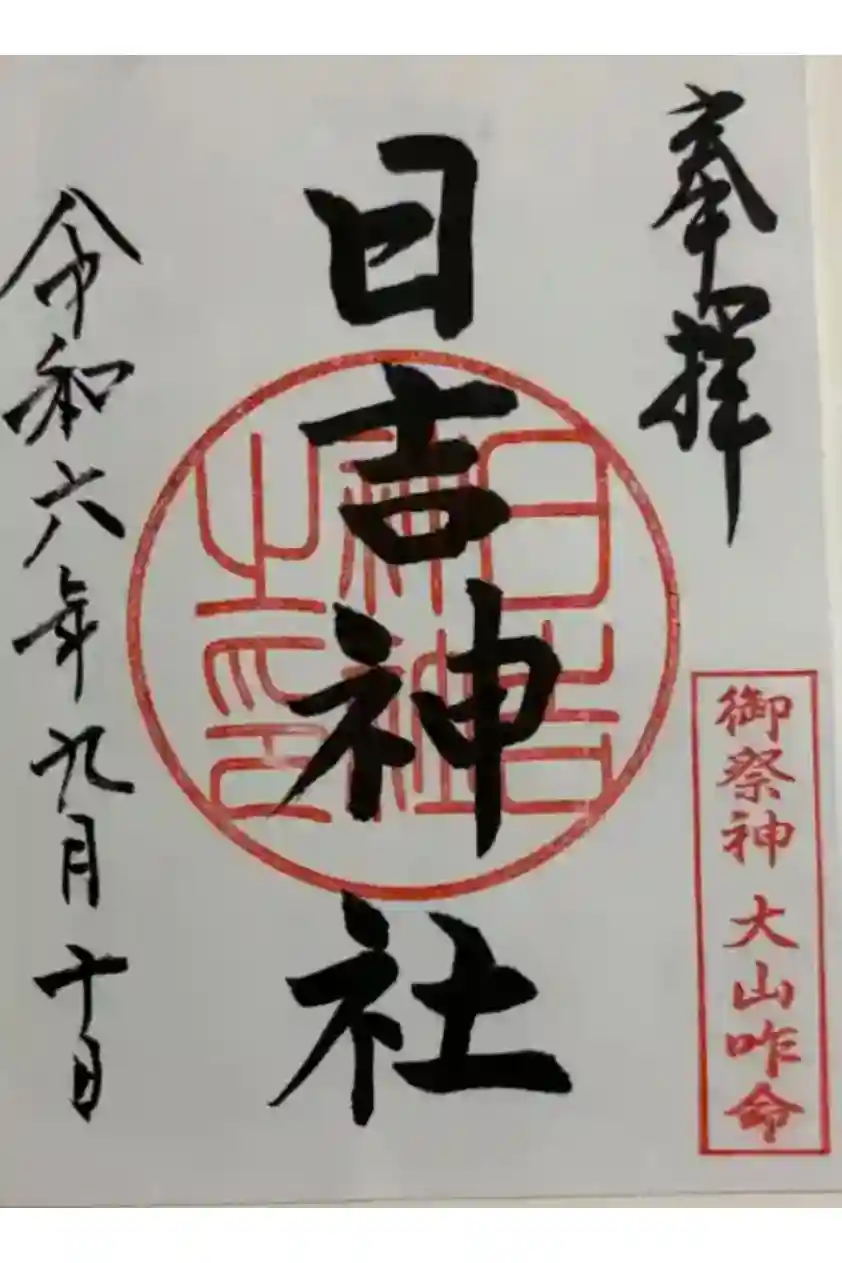 奉拝
御祭神 大山咋命
日吉神社
日吉神社之印
令和六年九月十日